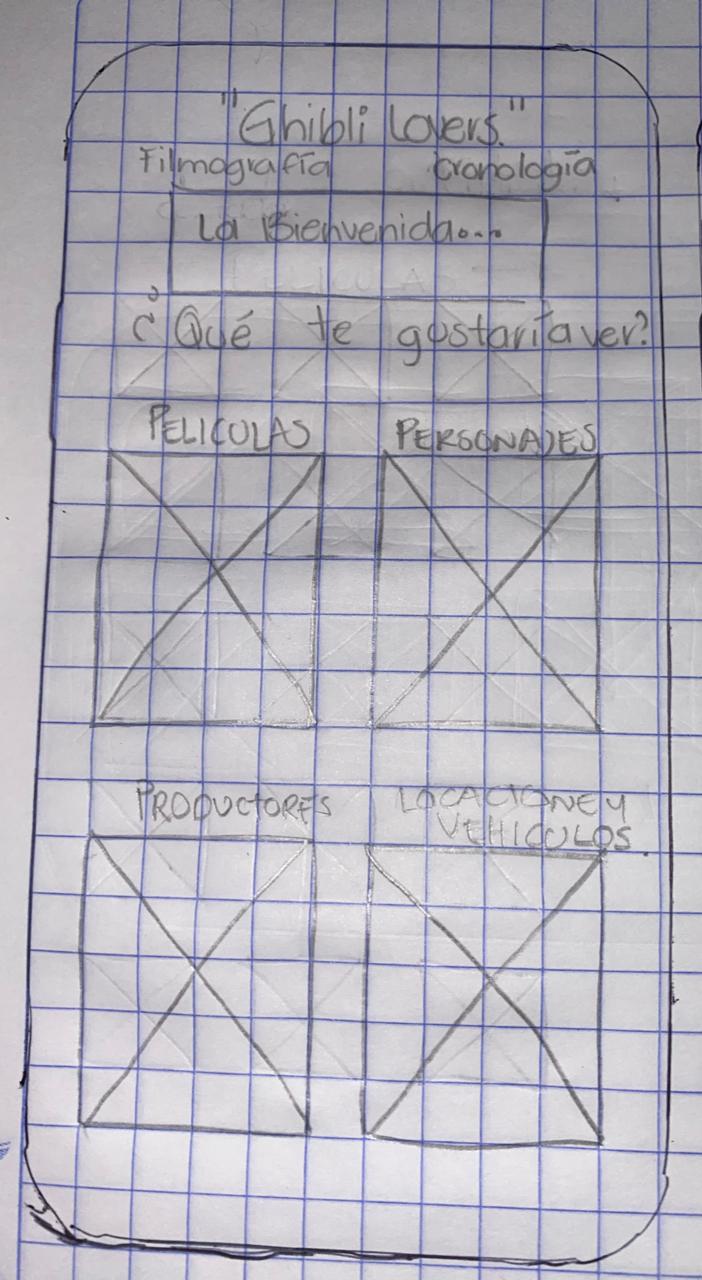 "Ghibli Lovers."
Filmografía cronología
La Bienvenida...
¿Qué te gustaría ver?
PELICULAS PERSONAJES
PRODUCTORES LOCACIONE Y
VEHICULOS.